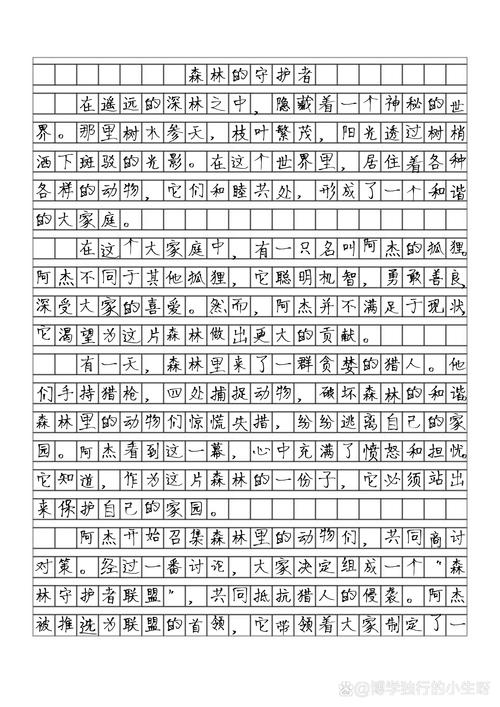 森林的守护者
在遥远的深林之中，隐藏着一个神秘的世
界。那里树木参天，枝叶繁茂，阳光透过树梢
洒下斑驳的光影。在这个世界里，居住着各种
各样的动物，它们和睦共处，形成了一个和谐
的大家庭。
在这个大家庭中，有一只名叫阿杰的狐狸。
阿杰不同于其他狐狸，它聪明机智，勇敢善良，
深受大家的喜爱。然而，阿杰并不满足于现状，
它渴望为这片森林做出更大的贡献。
有一天，森林里来了一群贪婪的猎人。他
们手持猎枪，四处捕捉动物，破坏森林的和谐。
森林里的动物们惊慌失措，纷纷逃离自己的家
园。阿杰看到这一幕，心中充满了愤怒和担忧。
它知道，作为这片森林的一份子，它必须站出
来保护自己的家园。
阿杰开始召集森林里的动物们，共同商讨
对策。经过一番讨论，大家决定组成一个“森
林守护者联盟”，共同抵抗猎人的侵袭。阿杰
被推选为联盟的首领，它带领着大家制定了一
@博学独行的小生呀